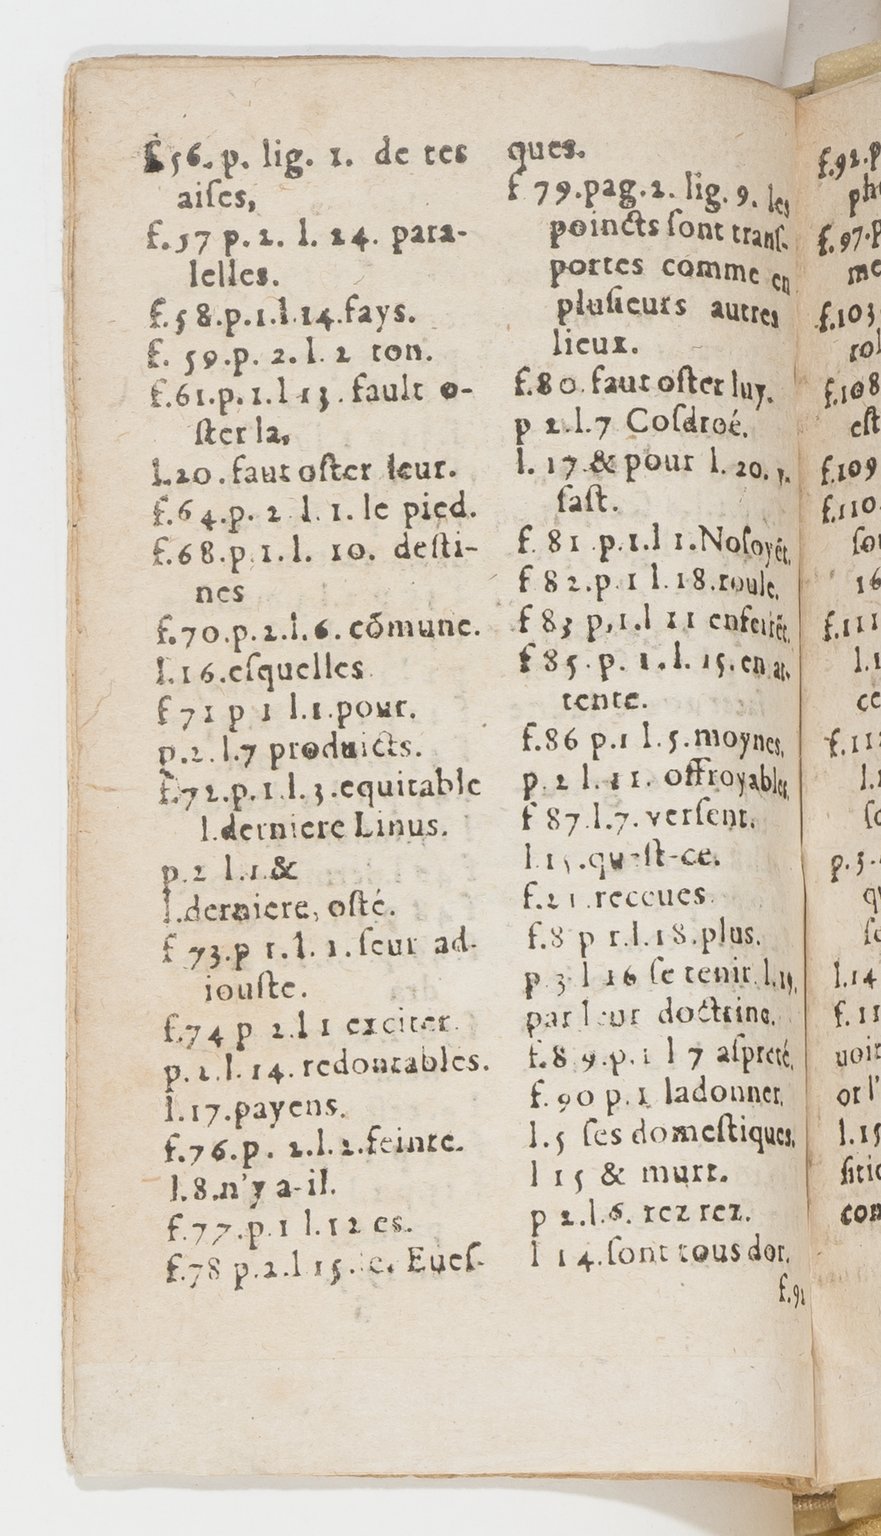 f.56. p. lig. 1. de tes
aiſes,
f.57 p. 2. l. 24. para-
lelles.
f.58.p.1.l.14.fays.
f. 59.p. 2. l. 2 ton.
f.61.p.1.l 13. fault o-
ſter la,
l.20.faut oſter leur.
f.64.p. 2 l. 1. le pied.
f.68.p.1.l. 10. deſti-
nes
f.70.p.2.l.6. cõmune.
l.16.eſquelles
f 71 p 1 l.1.pour.
p.2.l.7 produicts.
f.72.p.1.l.3.equitable
l.derniere Linus.
p.2 l.1.&
l.derniere, oſté.
f 73.p 1.l. 1.ſeur ad-
iouſte.
f.74 p 2.l 1 exciter.
p.2.l.14.redoutables.
l.17.payens.
f.76.p. 2.l.2.feinte.
l.8.n'y a-il.
f.77.p.1 l.12 es.
f.78 p.2.l 15. Eueſ-
ques.
f 79.pag.2. lig. 9. les
poincts ſont tranſ-
portes comme en
pluſieurs autres
lieux.
f.80.faut oſter luy.
p 2.l.7 Coſdroé.
l. 17.& pour l. 20. y.
faſt.
f. 81 .p.1.l 1.Noſoyẽt.
f 82.p 1 l.18.roule.
f 83 p,1.l 11 enfeirẽt.
f 85.p. 1.l.15.en at-
tente.
f.86 p.1 l.5.moynes.
p.2 l.11. offroyables.
f 87.l.7.verſent.
l 15.qu'eſt-ce.
f.21.receues
f.8 p 1.l.18.plus.
p 3 l 16 ſe tenir.l.19.
par leur doctrine.
f.89.p.1 l 7 aſpreté.
f.90 p.1 ladonner.
l.5 ſes domeſtiques.
l 15 & murt.
p 2.l.6. rez rez.
l 14.ſont tous dor.
f.91
f.92.p
ph
f.97.p
me
f.103
rol
f.108
eſt
f.109
f.110.
ſou
16
f.111
l.1
ce
f.11
l.1
ſc
p.3.
qu
ſe
l.14
f.11
uoir
or l'
l.15
ſitio
con